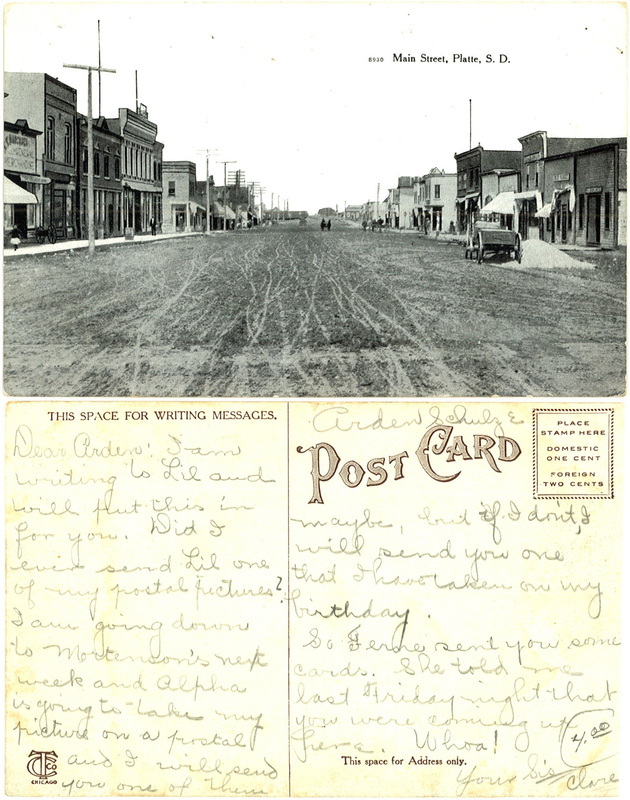 8930 Main Street, Platte, S. D.
THIS SPACE FOR WRITING MESSAGES.
Dear Arden! I am
writing to Lil and
will put this in
for you. Did I
ever send Lil one
of my postal pictures?
I am going down
to Mortenson's next
week and Alpha
is going to take my
picture on a postal
and I will send
you one of them
TCT CO
CHICAGO
Arden Schulz
POST CARD
PLACE
STAMP HERE
DOMESTIC
ONE CENT
FOREIGN
TWO CENTS
maybe, but if I don't, I
will send you one
that I have taken on my
birthday.
So Ferne sent you some
cards. She told me
last Friday night that
you were coming up
here. Whoa!
4.00
This space for Address only.
Your Sis
Clare